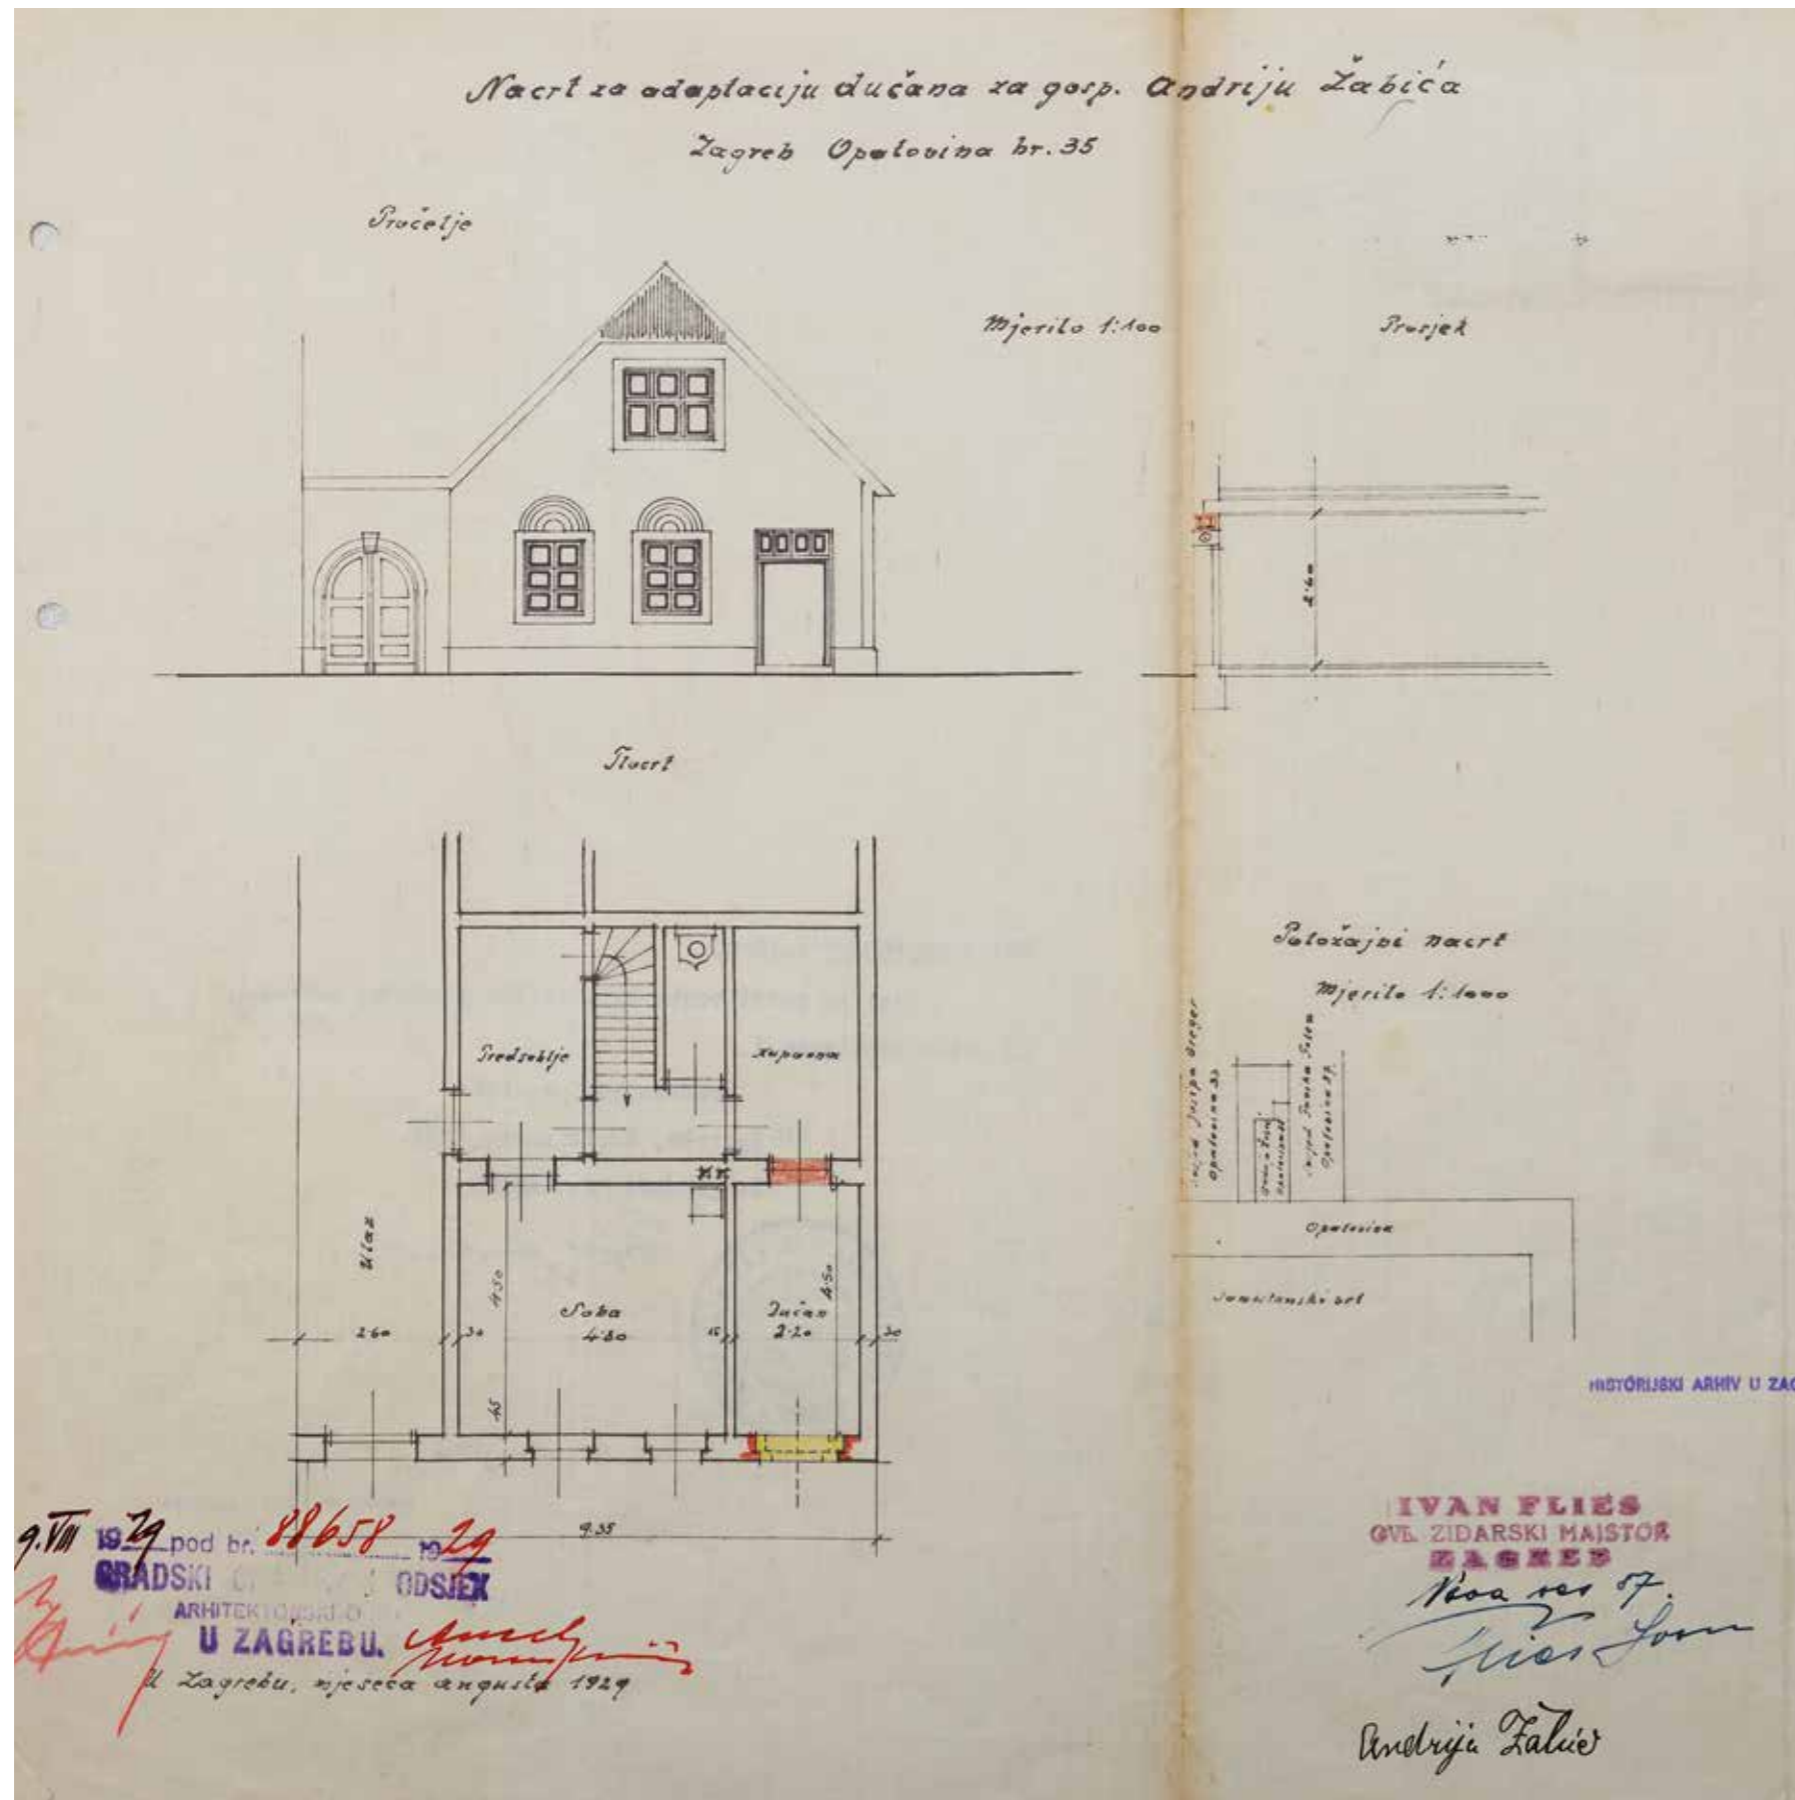 Nacrt za adaptaciju dućana za gosp. Andriju Žabića
Zagreb Opatovina br. 35
Pročelje
Mjerilo 1:100
Presjek
2·60
Tlocrt
Predsoblje
Kupaona
Ulaz
4·50
Soba
4·80
Dućan
2·20
4·50
2·60
30
15
30
45
9·35
Položajni nacrt
Mjerilo 1:1000
Opatovina 33
Opatovina 37
Opatovina
HISTORIJSKI ARHIV U ZAG
9.VIII 1929 pod br. 88658 1929
GRADSKI ODSJEK
U ZAGREBU.
U Zagrebu, mjeseca augusta 1929
IVAN FLIES
OVL. ZIDARSKI MAJSTOR
ZAGREB
Nova ves 87.
Flies Ivan
Andrija Žabić